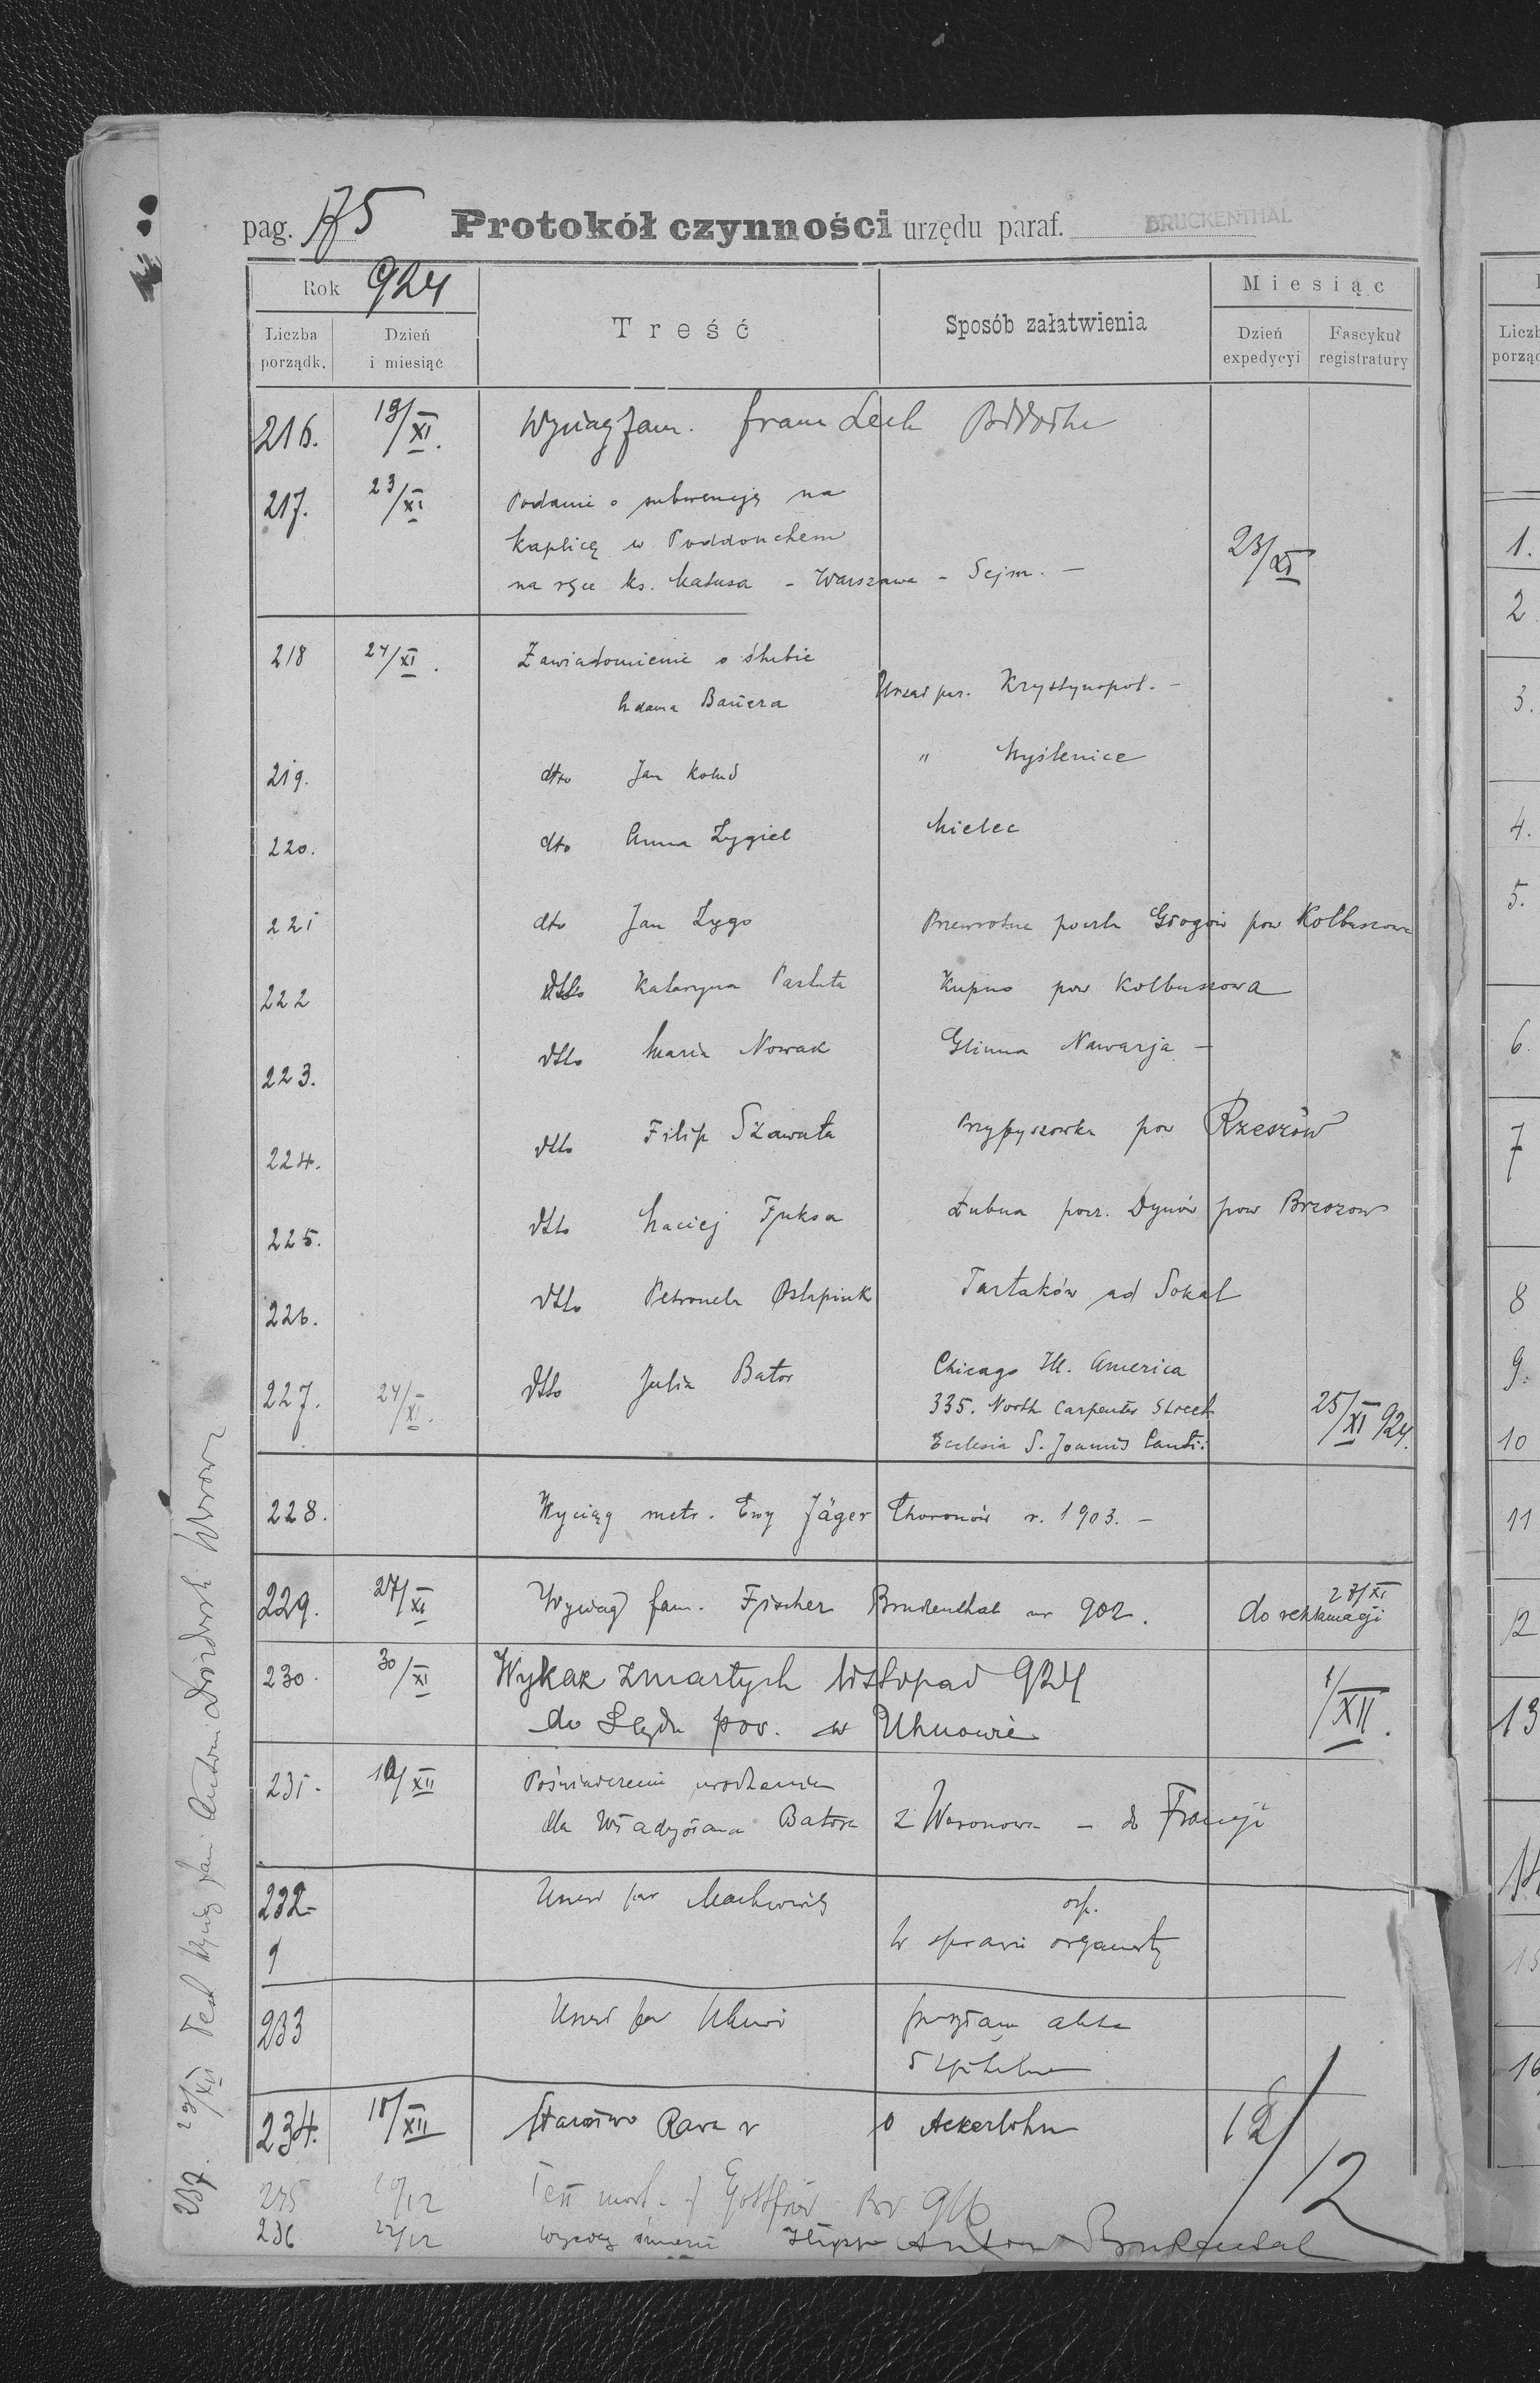 pag. 75 Protokół czynności urzędu paraf. BRUCKENTHAL
Rok 924
Liczba porządk.
Dzień i miesiąc
Treść
Sposób załatwienia
Miesiąc
Dzień expedycyi
Fascykuł registratury
216. 19/XI. Wyciąg fam. Lech
217. 23/XI Podanie o subwencję na
kaplicę w Poddonchem
na ręce ks. Matusa - Warszawa - Sejm. - 23/XI
218 24/XI. Zawiadomienie o ślubie
Adama Bauera Urząd par. Krystynopol. -
219. dto Jan Kołud " Myślenice
220. dto Anna Zygiel Mielec
221 dto Jan Zygo Przewrotne poczta Głogów pow Kolbuszowa
222 dtto Katarzyna Kupno pow Kolbuszowa
223. dtto Maria Nowak Glinna Nawarja -
224. dtto Filip Szawała Przybyszówka pow Rzeszów
225. dtto Maciej Fuksa Łubna pocz. Dynów pow Brzozow
226. dtto Petronela Ostapiuk Tartaków ad Sokal
227. 24/XI. dtto Julia Bator Chicago Ill. America
335. North Carpenter Street
Ecclesia S. Joannis Canti: 25/XI 924.
228. Wyciąg metr. Ewy Jäger Choronów r. 1903. -
229. 27/XI Wyciąg fam. Fischer Bruckenthal ur 902. do reklamacji 27/XI
230. 30/XI Wykaz zmarłych listopad 924
do Sądu pow. w Uhnowie 1/XII.
231. 10/XII Poświadczenie urodzenia
dla Władysława Batora z Woronowa - do Francji
232- Urząd par Machnówek odp.
w sprawie organisty
233 Urząd par Uhnów
234. 18/XII Starostwo Rawa r o Ackerlohn 18/12
235 20/12 Gottfried 916
236 22/12 Antoni Brukental
237. 29/XII
Liczb
porząd
1.
2
3.
4.
5.
6.
7
8
9.
10
11
12
13
14
15
16